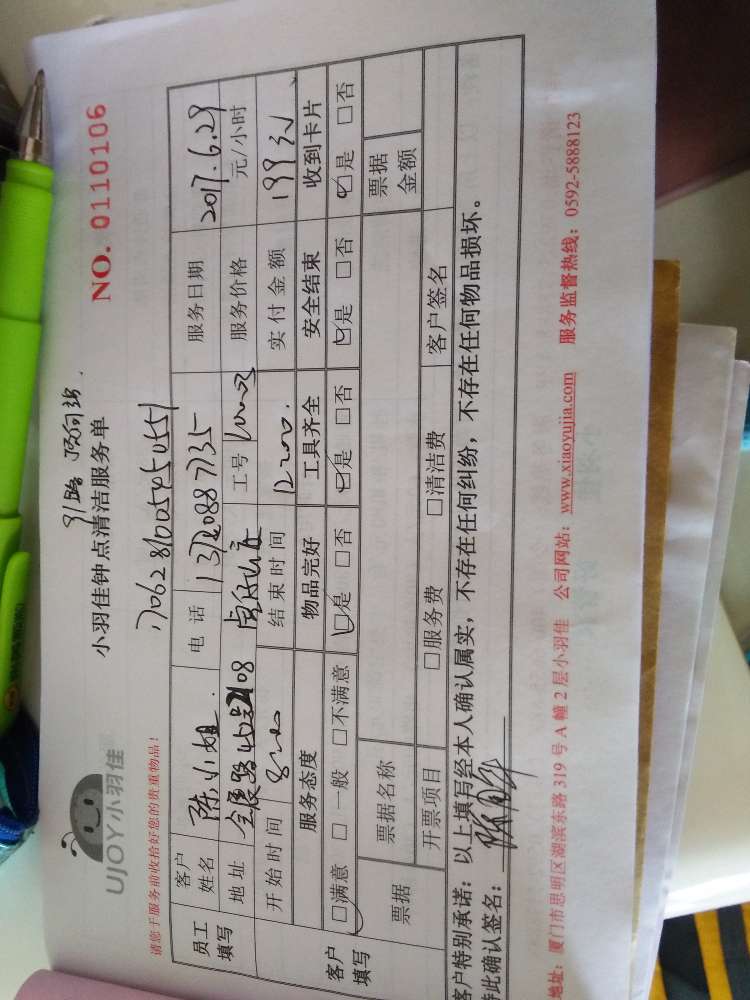 UJOY小羽佳
小羽佳钟点清洁服务单
NO. 0110106
请您于服务前收拾好您的贵重物品!
员工填写
客户姓名 陈小姐. 电话 服务日期 2017.6.29
地址 工号 服务价格 元/小时
开始时间 结束时间 1200. 实付金额 199元
客户填写
服务态度 物品完好 工具齐全 安全结束 收到卡片
□满意 □一般 □不满意 □是 □否 □是 □否 □是 □否 □是 □否
票据 票据名称 票据金额
开票项目 □服务费 □清洁费 客户签名
客户特别承诺：以上填写经本人确认属实，不存在任何纠纷，不存在任何物品损坏。
特此确认签名：
地址：厦门市思明区湖滨东路 319 号 A 幢 2 层小羽佳 公司网站：www.xiaoyujia.com 服务监督热线：0592-5888123